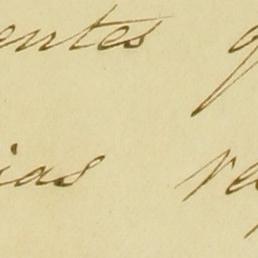 entes q
ias re